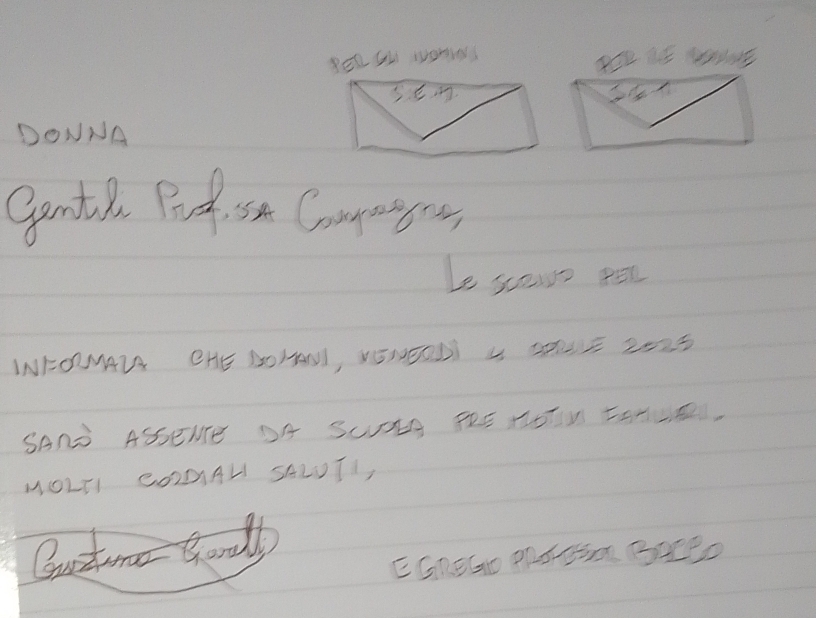 PER GLI UOMINI PER LE DONNE
S.E.M. S.E.M
DONNA
Gentile Prof.ssa Campagna,
Le SCRIVO PER
INFORMALA CHE DOMANI, VENERDÌ 4 APRILE 2025
SARÒ ASSENTE DA SCUOLA PRE MOTIVI FAMILIARI.
MOLTI CORDIALI SALUTI,
EGREGIO PROFESSOR